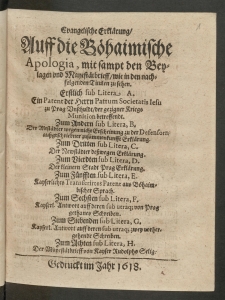 Evangelische Erklärung/
Auff die Böhaimische
Apologia, mit sampt den Bey-
lagen vnd Mayestätbrieff/ wie in den nach-
folgenden Titulen zu sehen.
Erstlich sub Litera, A.
Ein Patent der Herrn Patrum Societatis Iesu
zu Prag Vnschuldt/ der gezigner Kriegs
Munition betreffendt.
Zum Andern sub Litera, B.
Der Altstätter Erscheinung zu der Defensorn/
zusammenkunfft Erklärung.
Zum Dritten sub Litera, C.
Der Newstätter deßwegen Erklärung.
Zum Vierdten sub Litera, D.
Der kleinern Stadt Prag Erklärung.
Zum Fünfften sub Litera, E.
Kayserlichs Transferirtes Patent aus Böhaim-
ischer Sprach.
Zum Sechsten sub Litera, F.
Kayserl. Antwort auff deren sub utraq; von Prag
gethanes Schreiben.
Zum Siebenden sub Litera, G.
Kayserl. Antwort auff deren sub utraq; zwey vorher-
gehende Schreiben.
Zum Achten sub Litera, H.
Der Mayestätbrieff von Kayser Rudolpho Selig.
Gedruckt im Jahr 1618.